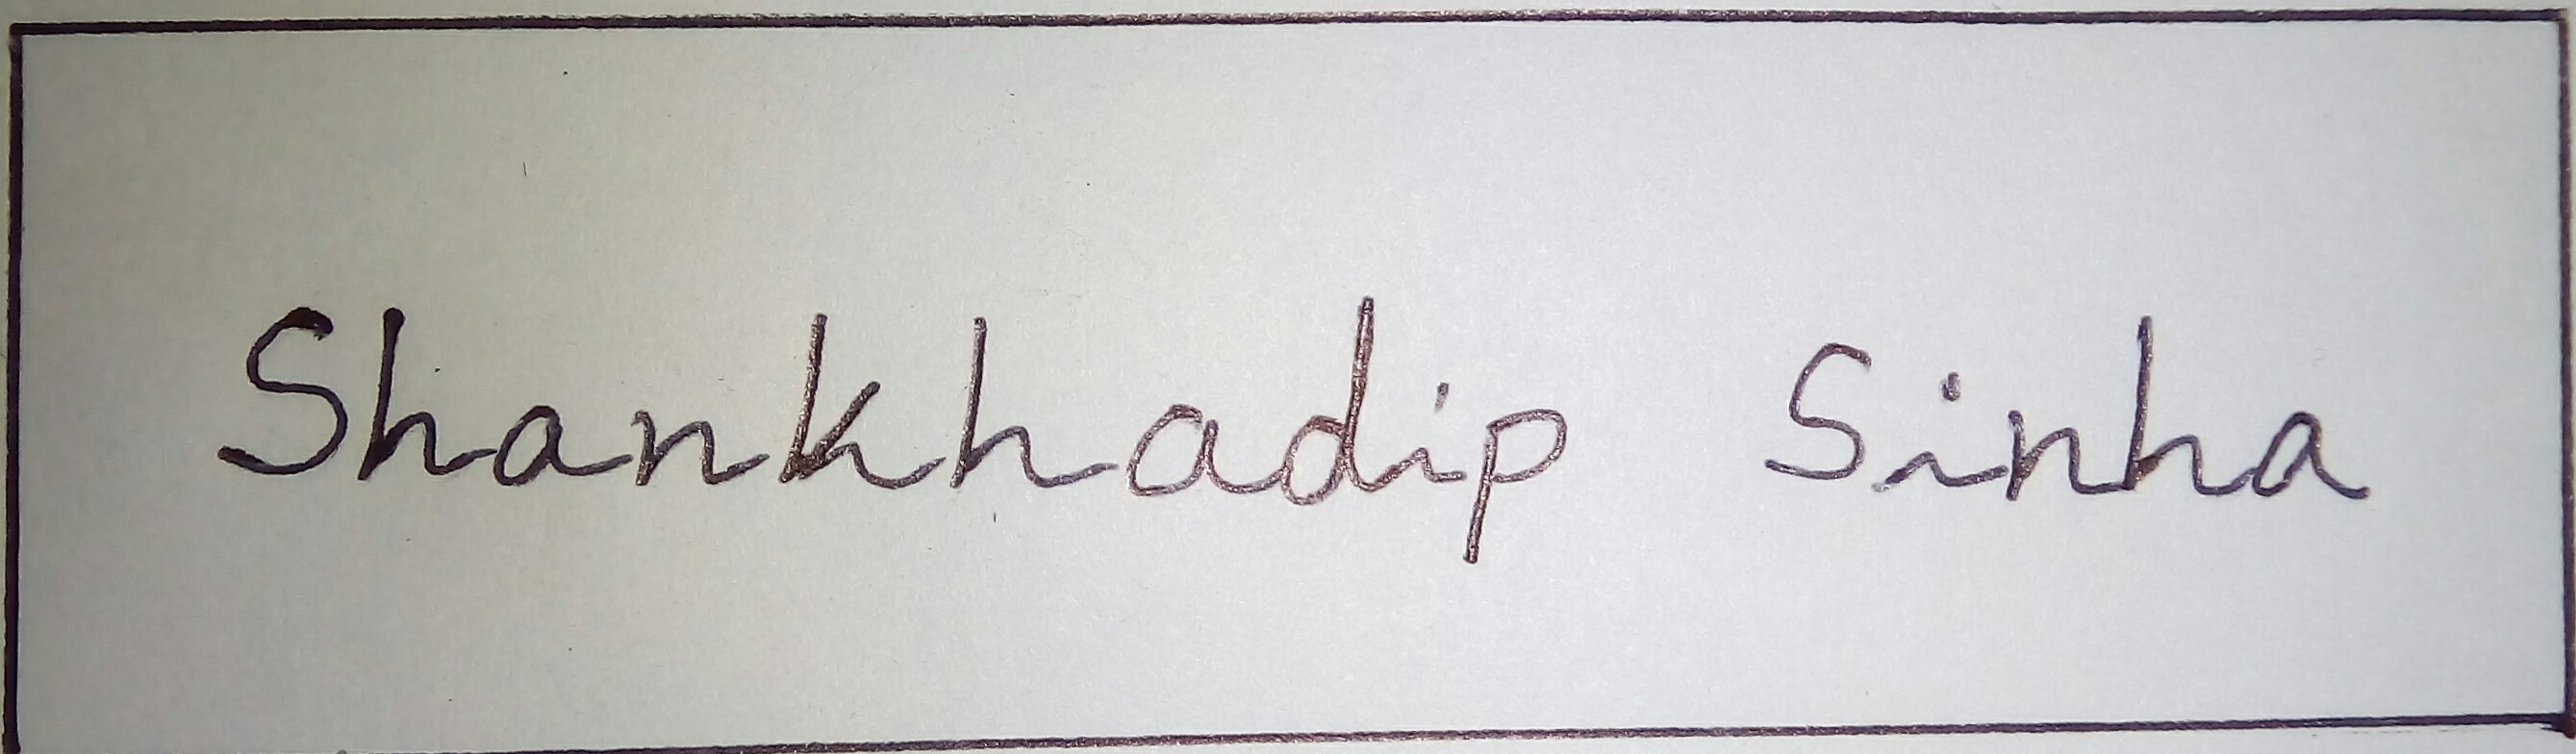 Shankhadip Sinha